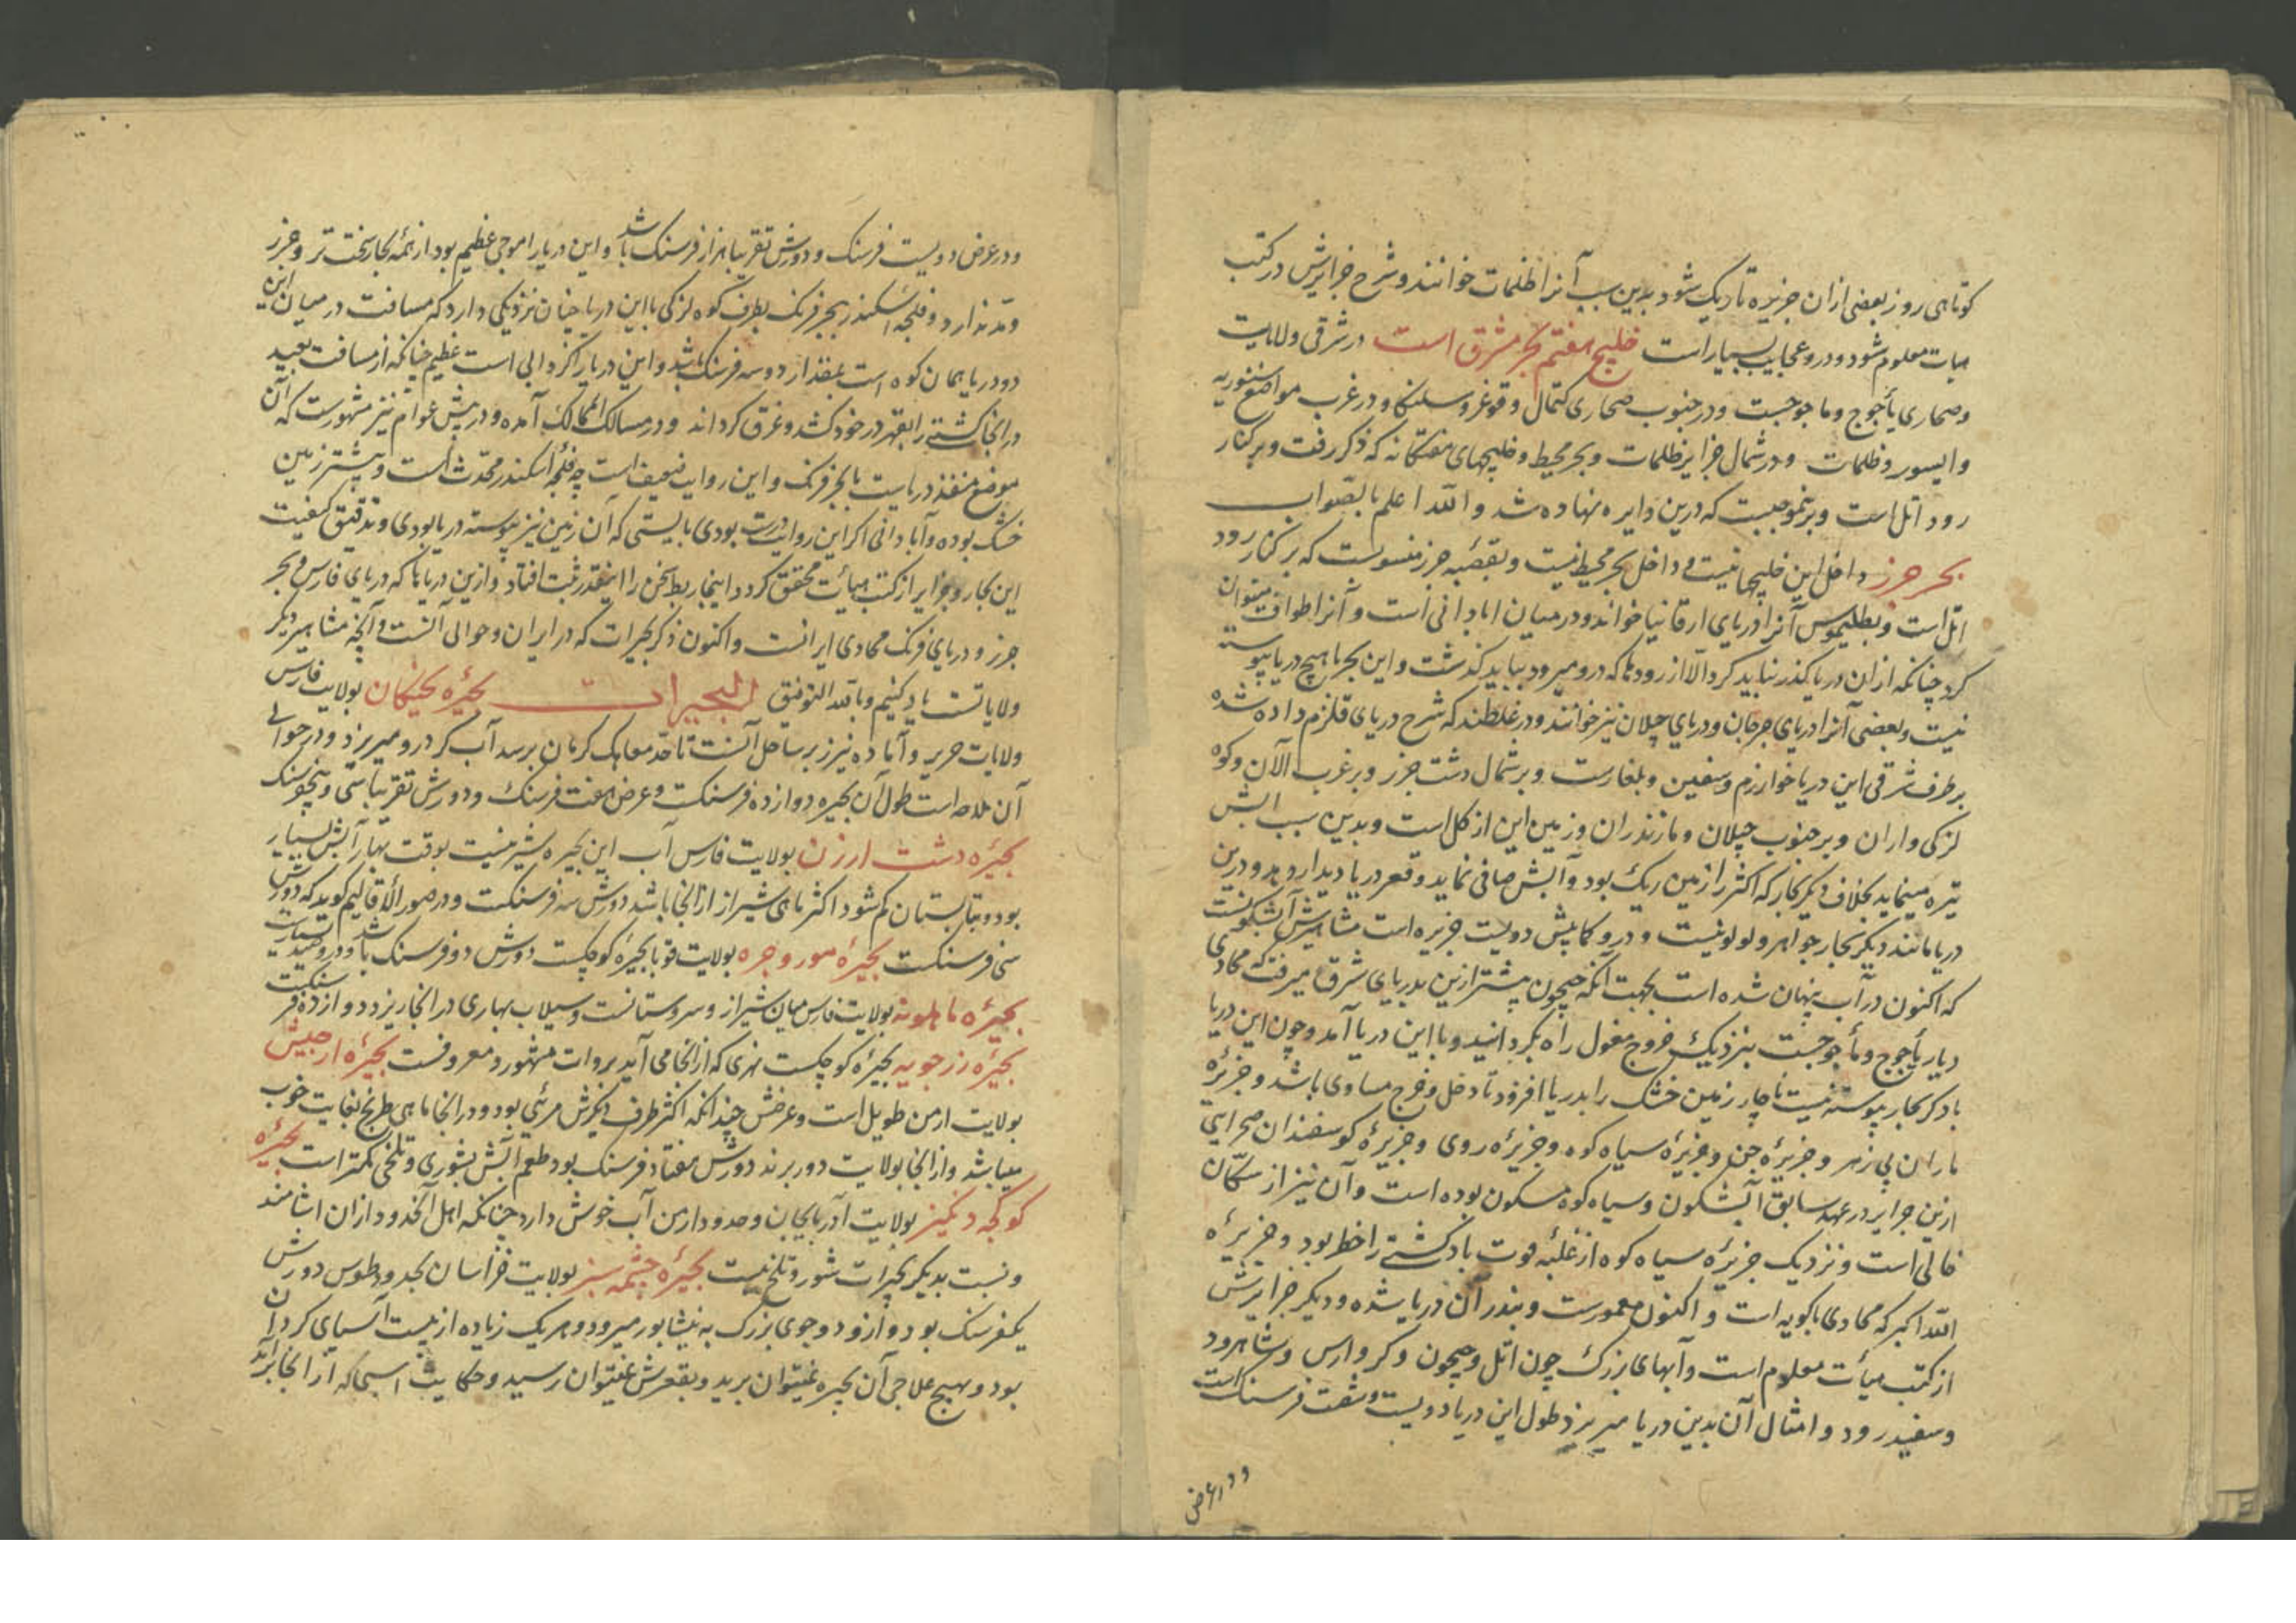 کوتاهی روز بعضی ازان جزیره تاریک شود بدین سبب آنرا ظلمات خوانند و شرح جزایرش در کتب
هیات معلوم شود و درو عجایب بسیار است خلیج هفتم بحر مشرق است در شرقی ولایت
و صحاری یأجوج و ماجوجست و در جنوب صحاری کتمال و قوغر و سلنکا و در غرب مواضع سنوریه
و ایسور و ظلمات و در شمال جزایر ظلمات و بحر محیط و خلیجهای هفتگانه که ذکر رفت و بر کنار
رود اتل است و برینموجبست که درین دایره نهاده شد و الله اعلم بالصواب
بحر خزر داخل این خلیجها نیست و داخل بحر محیط نیست و بقصبه خزر منسوبست که بر کنار رود
اتل است و بطلیموس آنرا دریای ارقانیا خواند و در میان ابادانی است و آنرا طواف میتوان
کرد چنانکه ازان دریا گذر نباید کرد الا از رودها که درو میرود بباید گذشت و این بحر با هیچ دریا پیوسته
نیست و بعضی آنرا دریای جرجان و دریای جیلان نیز خوانند و در غلطند که شرح دریای قلزم داده شده
بر طرف شرقی این دریا خوارزم و سقین و بلغارست و بر شمال دشت خزر و بر غرب الان و کوه
لزکی و اران و بر جنوب جیلان و مازندران و زمین این از گل است و بدین سبب ابش
تیره مینماید بخلاف دیگر بحار که اکثر را زمین ریگ بود و آبش صافی نماید و قعر دریا دیدار دهد و درین
دریا مانند دیگر بحار جواهر و لولو نیست و درو کمابیش دویست جزیره است مشاهیرش آبسکونست
که اکنون در آب پنهان شده است بجهت آنکه جیحون پیشتر ازین بدریای شرق میرفت که محاذی
دیار یأجوج و مأجوجست بنزدیک خروج مغول راه بگردانید و با این دریا آمد و چون این دریا
با دگر بحار پیوسته نیست ناچار زمین خشک را بدریا افزود تا دخل و خرج مساوی باشد و جزیرهٔ
ماران بی زهر و جزیرهٔ جن و جزیرهٔ سیاه کوه و جزیرهٔ روی و جزیرهٔ گوسفندان صحرایی
ازین جزایر در عهد سابق آبسکون و سیاه کوه مسکون بوده است و آن نیز از سکان
خالی است و نزدیک جزیرهٔ سیاه کوه از غلبهٔ قوت باد کشتی را خطر بود و جزیرهٔ
الله اکبر که محاذی باکویه است و اکنون معمورست و بندر آن دریا شده و دیگر جزایرش
از کتب هیأت معلوم است و آبهای بزرگ چون اتل و جیحون و کر و ارس و شاهرود
و سفیدرود و امثال آن بدین دریا میریزد طول این دریا دویست و شصت فرسنگ است
و در عرض
و در عرض دویست فرسنگ و دورش تقریبا هزار فرسنگ باشد و این دریا را موجی عظیم بود از همهٔ بحار سخت تر و جزر
و مد ندارد و فلجهٔ اسکندر ببحر فرنک بطرف کوه لزکی با این دریا چنان نزدیکی دارد که مسافت در میان این
دو دریا همان کوه است بمقدار دو سه فرسنگ باشد و این دریا را گردابی است عظیم چنانکه از مسافت بعید
در انجا کشتی را بقهر در خود کشد و غرق گرداند و در مسالک الممالک آمده و در پیش عوام نیز مشهورست که آن
موضع منفذ دریاست با بحر فرنک و این روایت ضعیف است چه فلجه اسکندر محدث است و پیشتر زمین
خشک بوده و آبادانی اگر این روایت درست بودی بایستی که آن زمین نیز پیوسته دریا بودی و تدقیق کیفیت
این بحار و جزایر از کتب هیأت محقق گردد اینجا ربط سخن را اینقدر ثبت افتاد و ازین دریاها که دریای فارس و بحر
خزر و دریای فرنک محاذی ایرانست و اکنون ذکر بحیرات که در ایران و حوالی آنست و آنچه مشاهیر دیگر
ولایاتست یاد کنیم و بالله التوفیق البحیرات بحیرهٔ بختگان بولایت فارس
ولایات خریر و آباده نیریز بر ساحل آنست تا حد صاهک کرمان برسد آب کر درو میریزد و در حوالی
آن ملاحه است طول آن بحیره دوازده فرسنگست و عرض هفت فرسنگ و دورش تقریبا سی و پنج فرسنگ
بحیرهٔ دشت ارزن بولایت فارس آب این بحیره شیرینست بوقت بهار آبش بسیار
بود و بتابستان کم شود اکثر ماهی شیراز از انجا باشد دورش سه فرسنگست و در صور الأقالیم گوید که دورش
سی فرسنگست بحیرهٔ مور و جره بولایت بحیرهٔ کوچکست دورش دو فرسنگ باشد و درو صید بسیارست
بحیرهٔ ماهلویه بولایت فارس میان شیراز و سروستانست و سیلاب بهاری در انجا ریزد دوازده فرسنگست
بحیرهٔ زرجویه بحیرهٔ کوچکست نهری که از انجا می آید بروات مشهور و معروفست بحیرهٔ ارجیش
بولایت ارمن طویل است و عرضش چندانکه اکثر طرف دیگرش مرئی بود و در انجا ماهی طریخ بغایت خوب
میباشد و از انجا بولایت دور برند دورش هفتاد فرسنگ بود طعم آبش بشوری و تلخی کمتر است بحیرهٔ
کوکچه دنکیز بولایت آذربایجان و حدود ارمن آب خوش دارد چنانکه اهل آنحدود ازان اشامند
و نسبت بدیگر بحیرات شور و تلخ نیست بحیرهٔ چشمه سبز بولایت خراسان بحدود طوس دورش
یکفرسنگ بود و ازو دو جوی بزرگ به نیشابور میرود و هریک زیاده از بیست آسیای گردان
بود و بهیچ علاجی آن بحیره نمیتوان برید و بقعرش نمیتوان رسید و حکایت اسبی که از انجا برآمد